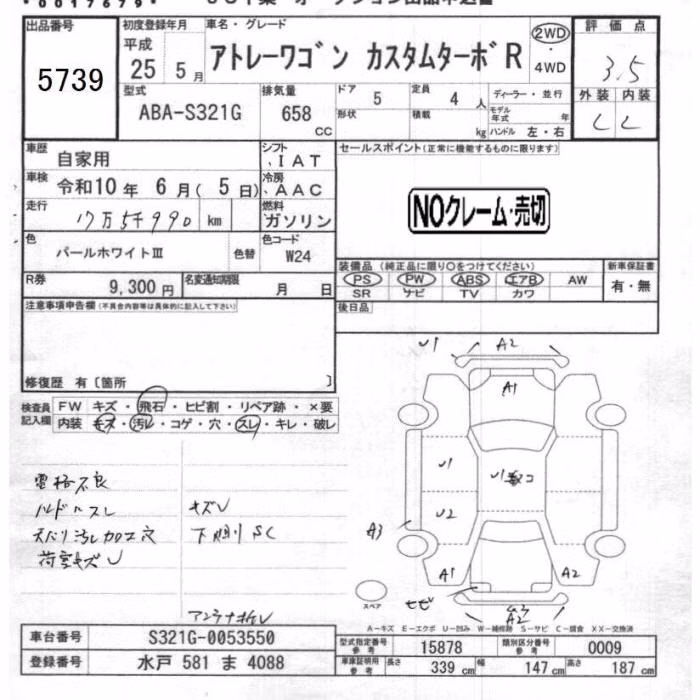 出品番号 初度登録年月 車名・グレード 評価点
5739 平成 25 5月 アトレーワゴン カスタムターボR 2WD・4WD 3.5
型式 排気量 ドア 定員 ディーラー・並行 外装 内装
ABA-S321G 658 CC 5 4人 モデル年式 年 C C
形状 積載 kg ハンドル 左・右
車歴 自家用 シフト 、IAT セールスポイント(正常に機能するものに限ります)
車検 令和10年 6月( 5日) 冷房 、AAC
NOクレーム・売切
走行 17万5千990 km 燃料 ガソリン
色 パールホワイトⅢ 色替 色コード W24
装備品(純正品に限り○をつけてください) 新車保証書
R券 9,300円 名変通知期限 月 日
PS PW ABS エアB AW 有・無
SR ナビ TV カワ
注意事項申告欄(不具合内容等は具体的に記入して下さい) 後日品
修復歴 有〔箇所 〕
検査員記入欄 FW キズ・飛石・ヒビ割・リペア跡・×要
内装 キズ・汚レ・コゲ・穴・スレ・キレ・破レ
U1 A2
A1
U1 U1数コ
U2
A3
A1 A2
ヒビ
A2
電格不良
ハンドルスレ キズU
天バリ汚レ加工穴 下廻りSC
荷室キズU
アンテナ折レ
スペア
A-キズ E-エクボ U-凹み W-補修跡 S-サビ C-腐食 XX-交換済
車台番号 S321G-0053550 型式指定番号 参考 15878 類別区分番号 参考 0009
登録番号 水戸 581 ま 4088 車庫証明用 参考 長さ 339 cm 幅 147 cm 高さ 187 cm